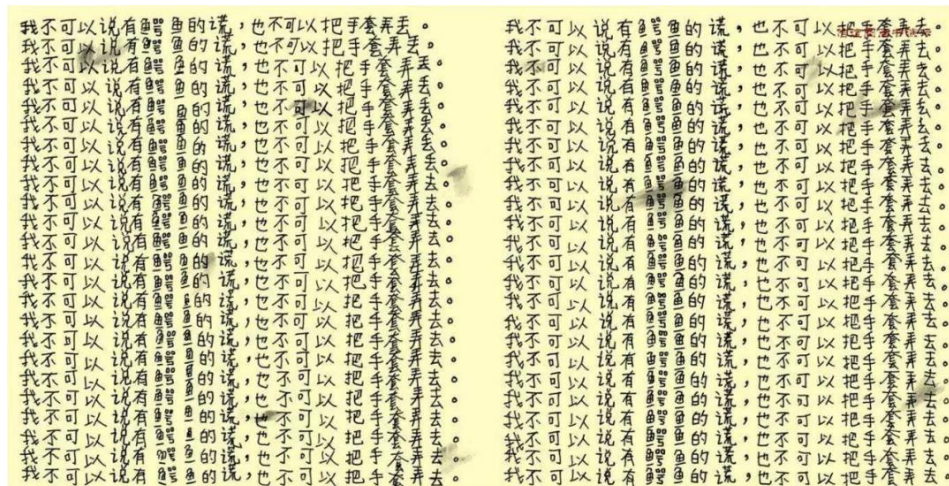 我不可以说有鳄鱼的谎，也不可以把手套弄丢。
我不可以说有鳄鱼的谎，也不可以把手套弄丢。
我不可以说有鳄鱼的谎，也不可以把手套弄丢。
我不可以说有鳄鱼的谎，也不可以把手套弄丢。
我不可以说有鳄鱼的谎，也不可以把手套弄丢。
我不可以说有鳄鱼的谎，也不可以把手套弄丢。
我不可以说有鳄鱼的谎，也不可以把手套弄丢。
我不可以说有鳄鱼的谎，也不可以把手套弄丢。
我不可以说有鳄鱼的谎，也不可以把手套弄丢。
我不可以说有鳄鱼的谎，也不可以把手套弄丢。
我不可以说有鳄鱼的谎，也不可以把手套弄丢。
我不可以说有鳄鱼的谎，也不可以把手套弄丢。
我不可以说有鳄鱼的谎，也不可以把手套弄丢。
我不可以说有鳄鱼的谎，也不可以把手套弄丢。
我不可以说有鳄鱼的谎，也不可以把手套弄丢。
我不可以说有鳄鱼的谎，也不可以把手套弄丢。
我不可以说有鳄鱼的谎，也不可以把手套弄丢。
我不可以说有鳄鱼的谎，也不可以把手套弄丢。
我不可以说有鳄鱼的谎，也不可以把手套弄丢。
我不可以说有鳄鱼的谎，也不可以把手套弄丢。
我不可以说有鳄鱼的谎，也不可以把手套弄丢。
我不可以说有鳄鱼的谎，也不可以把手套弄丢。
我不可以说有鳄鱼的谎，也不可以把手套弄丢。
我不可以说有鳄鱼的谎，也不可以把手套弄丢。
我不可以说有鳄鱼的谎，也不可以把手套弄丢。
我不可以说有鳄鱼的谎，也不可以把手套弄丢。
我不可以说有鳄鱼的谎，也不可以把手套弄丢。
我不可以说有鳄鱼的谎，也不可以把手套弄丢。
我不可以说有鳄鱼的谎，也不可以把手套弄丢。
我不可以说有鳄鱼的谎，也不可以把手套弄丢。
我不可以说有鳄鱼的谎，也不可以把手套弄丢。
我不可以说有鳄鱼的谎，也不可以把手套弄丢。
我不可以说有鳄鱼的谎，也不可以把手套弄丢。
我不可以说有鳄鱼的谎，也不可以把手套弄丢。
我不可以说有鳄鱼的谎，也不可以把手套弄丢。
我不可以说有鳄鱼的谎，也不可以把手套弄丢。
我不可以说有鳄鱼的谎，也不可以把手套弄丢。
我不可以说有鳄鱼的谎，也不可以把手套弄丢。
我不可以说有鳄鱼的谎，也不可以把手套弄丢。
我不可以说有鳄鱼的谎，也不可以把手套弄丢。
我不可以说有鳄鱼的谎，也不可以把手套弄丢。
我不可以说有鳄鱼的谎，也不可以把手套弄丢。
我不可以说有鳄鱼的谎，也不可以把手套弄丢。
我不可以说有鳄鱼的谎，也不可以把手套弄丢。
我不可以说有鳄鱼的谎，也不可以把手套弄丢。
我不可以说有鳄鱼的谎，也不可以把手套弄丢。
我不可以说有鳄鱼的谎，也不可以把手套弄丢。
我不可以说有鳄鱼的谎，也不可以把手套弄丢。